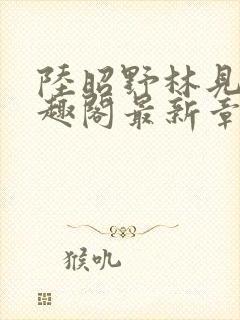 陸昭野林見
趣閣最新章
猴吼